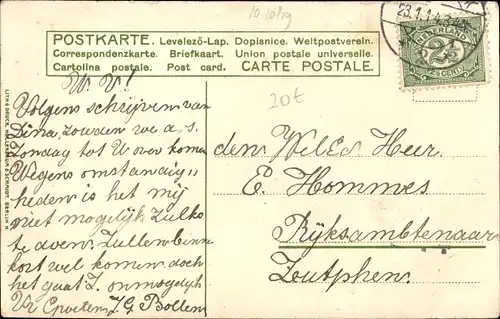 10-10/19
POSTKARTE. Levelező-Lap. Dopisnice. Weltpostverein.
Correspondenzkarte. Briefkaart. Union postale universelle.
Cartolina postale. Post card. CARTE POSTALE.
23.1.14.3-4
NEDERLAND
2½
CENT
20t
W. V!
Volgens schrijven van
Dina, zouden we a.s.
Zondag tot U over komen
Wegens omstandig=
heden is het mij
niet mogelijk Zulks
te doen. Zullen binnen
kort wel komen doch
het gaat Z. onmogelijk
Vr Groeten J. G. Bollem
den WelEd Heer
E. Hommes
Rijksambtenaar
Zutphen.